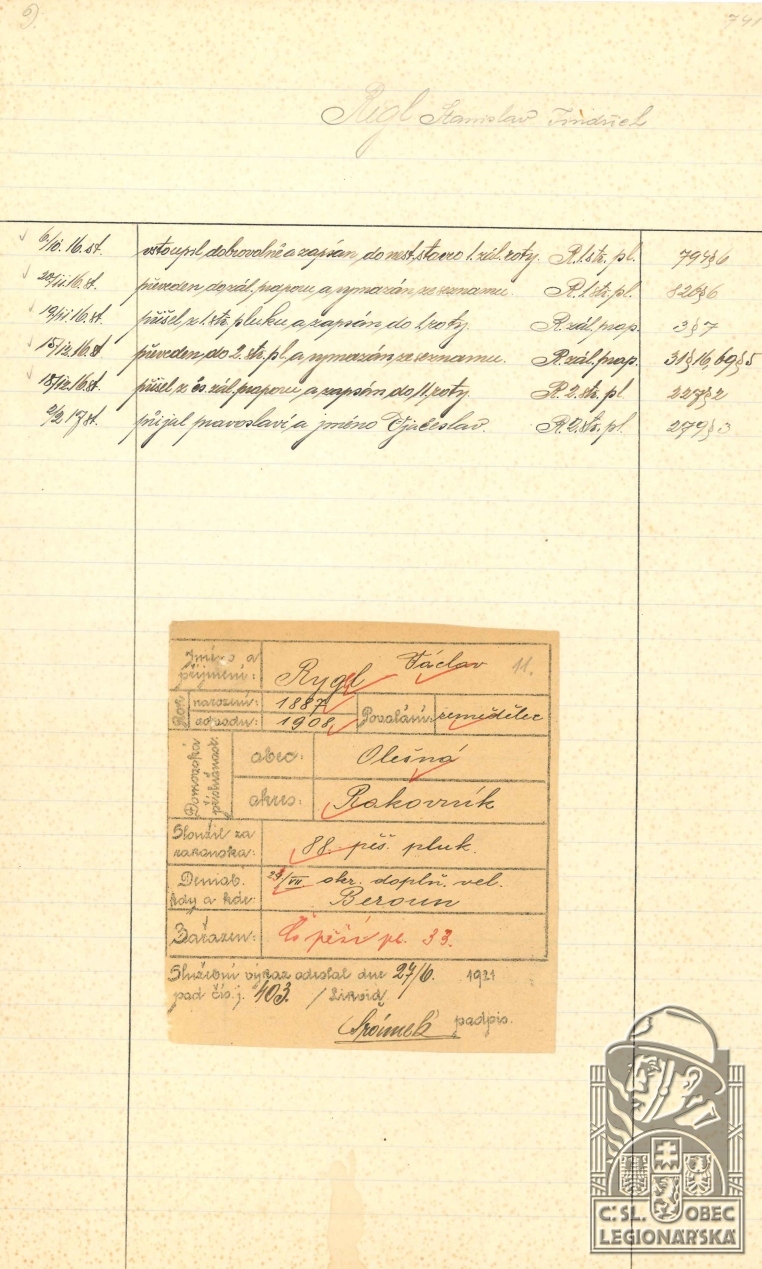 Rigl Stanislav Jindřich
6/10.16.st. vstoupil dobrovolně a zapsán do nest. stavu 1. zál. roty. R.1.stř.pl. 794§6
20/11.16.st. převeden do zál. praporu a vymazán ze seznamu. R.1.stř.pl. 826§6
19/11.16.st. přišel z 1. stř. pluku a zapsán do 1. roty. R.zál.prap. 3§7
15/12.16.st. převeden do 2. stř. pl. a vymazán ze seznamu. R.zál.prap. 31§16, 69§5
18/12.16.st. přišel z čs. zál. praporu a zapsán do 11. roty. R.2.stř.pl. 227§2
2/2 17 st. přijal pravoslaví a jméno Vjačeslav. R.2.stř.pl. 279§3
Jméno a příjmení: Rygl Václav 11.
Rok narození: 1887
odvodu: 1908 Povolání: zemědělec
Domovská příslušnost: obec: Olešná
okres: Rakovník
Sloužil za rakouska: 88. pěš. pluk.
Demob. kdy a kde: 29/VII. okr. doplň. vel. Beroun
Zařazen: Čs pěší pl. 33.
Služební výkaz odeslal dne 27/6. 1921
pod čís. j. 403. / Likvid
podpis.
Č:SL. OBEC
LEGIONÁŘSKÁ